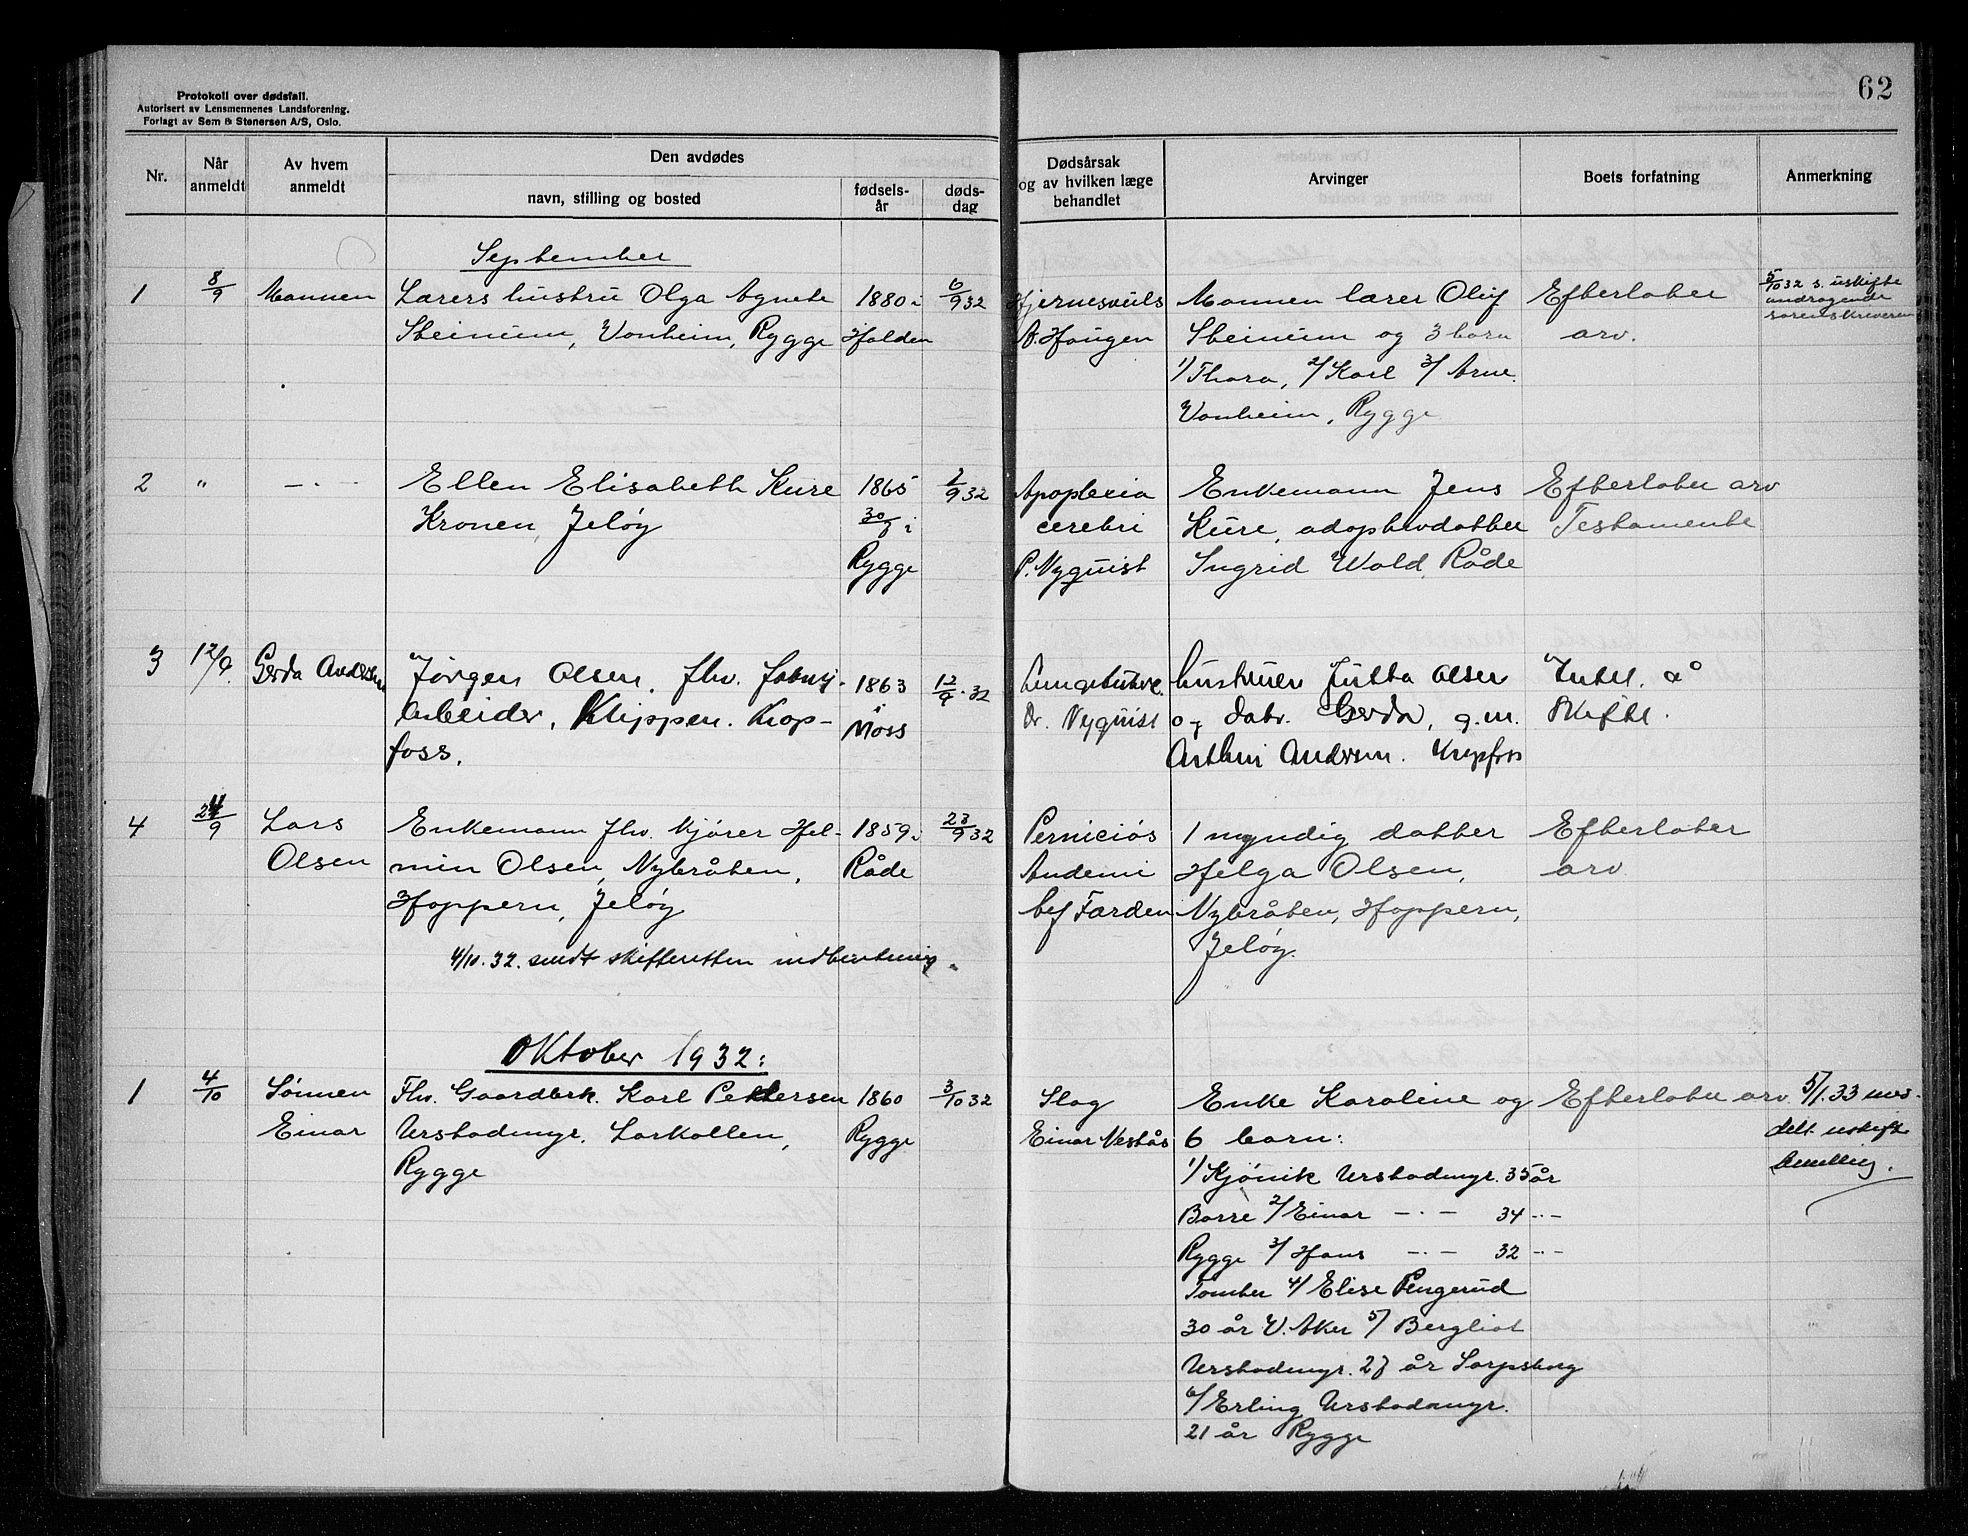 62
Protokoll over dødsfall.
Autorisert av Lensmennenes Landsforening.
Forlagt av Sem & Stenersen A/S, Oslo.
Nr.
Når anmeldt
Av hvem anmeldt
Den avdødes
navn, stilling og bosted
fødsels-år
døds-dag
Dødsårsak
og av hvilken læge
behandlet
Arvinger
Boets forfatning
Anmerkning
September
1
8/9
Mannen
Lærers hustru Olga Agnete
Steinum, Vonheim, Rygge
1880 i
Halden
6/9 32
Hjernesvuls
A. Haugen
Mannen lærer Oluf
Steinum og 3 barn
1/ Thora, 2/ Karl 3/ Arne.
Vonheim, Rygge
Efterlater
arv.
5/10 32 s. uskifte
andragende
sorenskriveren
2
"
— · —
Ellen Elisabeth Kure
Kronen, Jeløy
1865
30/7 i
Rygge
7/9 32
Apoplexia
cerebri
P. Nyquist
Enkemann Jens
Kure, adoptivdatter
Ingrid Wold, Råde
Efterlater arv
Testamente
3
12/9.
Gerda Andersen
Jørgen Olsen, fhv. fabrik-
arbeider, Klippen. Krap-
foss.
1863
i
Moss
12/9 . 32
Lungetuberk.
Dr. Nyquist
hustruen Jutta Olsen
og datr. Gerda, g.m.
Arthur Andersen. Krapfoss
Intet å
skifte.
4
24/9
Lars
Olsen
Enkemann fhv. kjører Hel-
min Olsen, Nybråten,
Hoppern, Jeløy
1859 i
Råde
23/9 32
Perniciøs
Andemi
bef Farden
1 myndig datter
Helga Olsen,
Nybråten, Hoppern,
Jeløy.
Efterlater
arv
4/10. 32. sendt skifteretten indberetning.
Oktober 1932:
1
4/10
Sønnen
Einar
Fhv. Gaardbrk. Karl Pettersen
Urstadmyr. Larkollen,
Rygge
1860
Rygge
3/10 32
Slag
Einar Vestås
Enke Karoline og
6 barn:
1/ Kjønik Urstadmyr. 35 år
Borre 2/ Einar — · — 34 — · —
Rygge 3/ Hans — · — 32 — · —
Tomter 4/ Elise Pengerud
30 år V. Aker 5/ Bergliot
Urstadmyr. 27 år Sarpsborg
6/ Erling Urstadmyr.
21 år Rygge
Efterlater arv.
5/1. 33 med-
delt uskifte
bevilling.